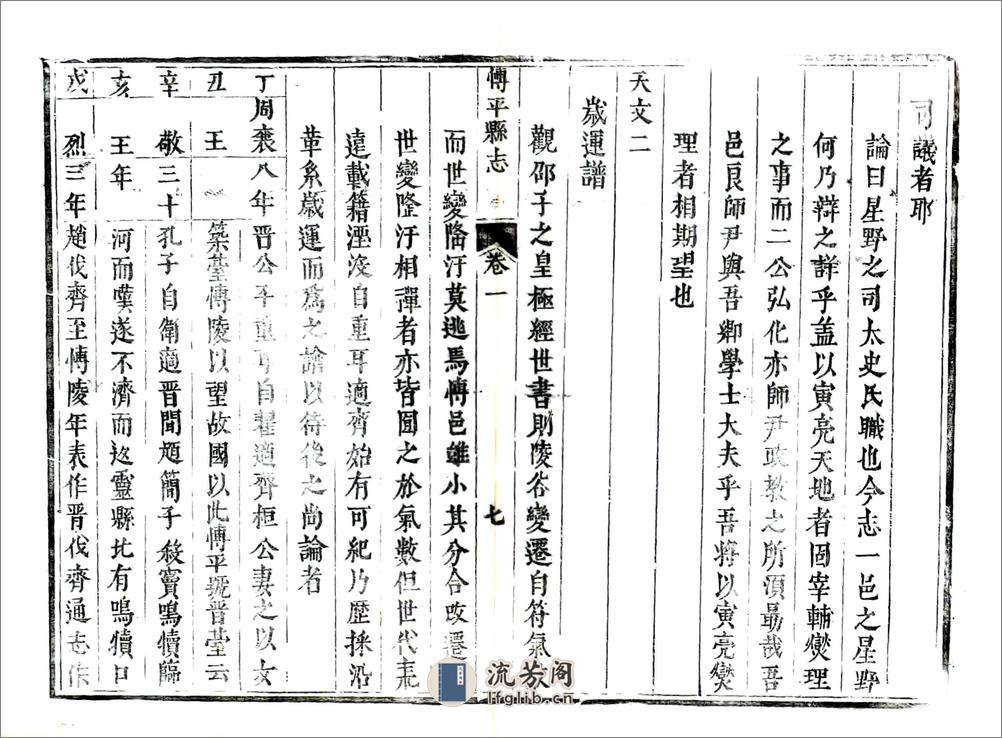 司議者耶
論曰星野之司太史氏職也今志一邑之星野
何乃辯之詳乎盖以寅亮天地者固宰輔燮理
之事而二公弘化亦師尹政教之所湏朂哉吾
邑良師尹與吾鄉學士大夫乎吾將以寅亮燮
理者相期望也
天文二
歲運譜
觀邵子之皇極經世書則陵谷變遷自符氣
傳平縣志
卷一
七
而世變隆汙莫逃焉愽邑雖小其分合改遷
世變隆汙相禪者亦皆囿之於氣數但世代表
遠載籍湮没自重耳適齊始有可紀乃歴採沿
革系歲運而為之論以待後之尚論者
丁丑
周襄王
八年
晋公子重耳自翟適齊桓公妻之以女
築臺愽陵以望故國以此愽平號晋臺云
辛亥
敬王
三十年
孔子自衛適晋聞趙簡子殺竇鳴犢臨
河而嘆遂不濟而返靈縣北有鳴犢口
戊
烈
三年
趙伐齊至愽陵年表作晋伐齊通志作
流芳阁
lfglib.cn